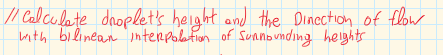 // Calculate droplet's height and the Direction of flow
with bilinear interpolation of surrounding heights